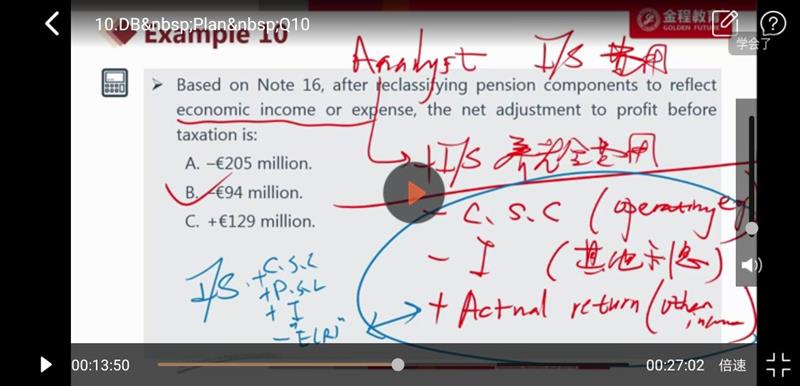 10.DB&nbsp;Plan&nbsp;Q10
Example 10
金程教育
GOLDEN FUTURE
学会了
Analyst I/S 费用
➢ Based on Note 16, after reclassifying pension components to reflect
economic income or expense, the net adjustment to profit before
taxation is:
A. –€205 million.
B. –€94 million.
C. +€129 million.
+I/S 养老金费用
- C.S.C (operating
- I (其他利息)
+ Actual return (other
income
I/S
+C.S.C
+P.S.C
+ I
- "E(R)"
00:13:50
00:27:02
倍速